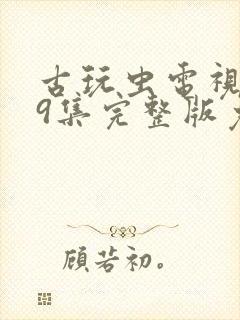 古玩虫電視
9集完整版
顾若初。